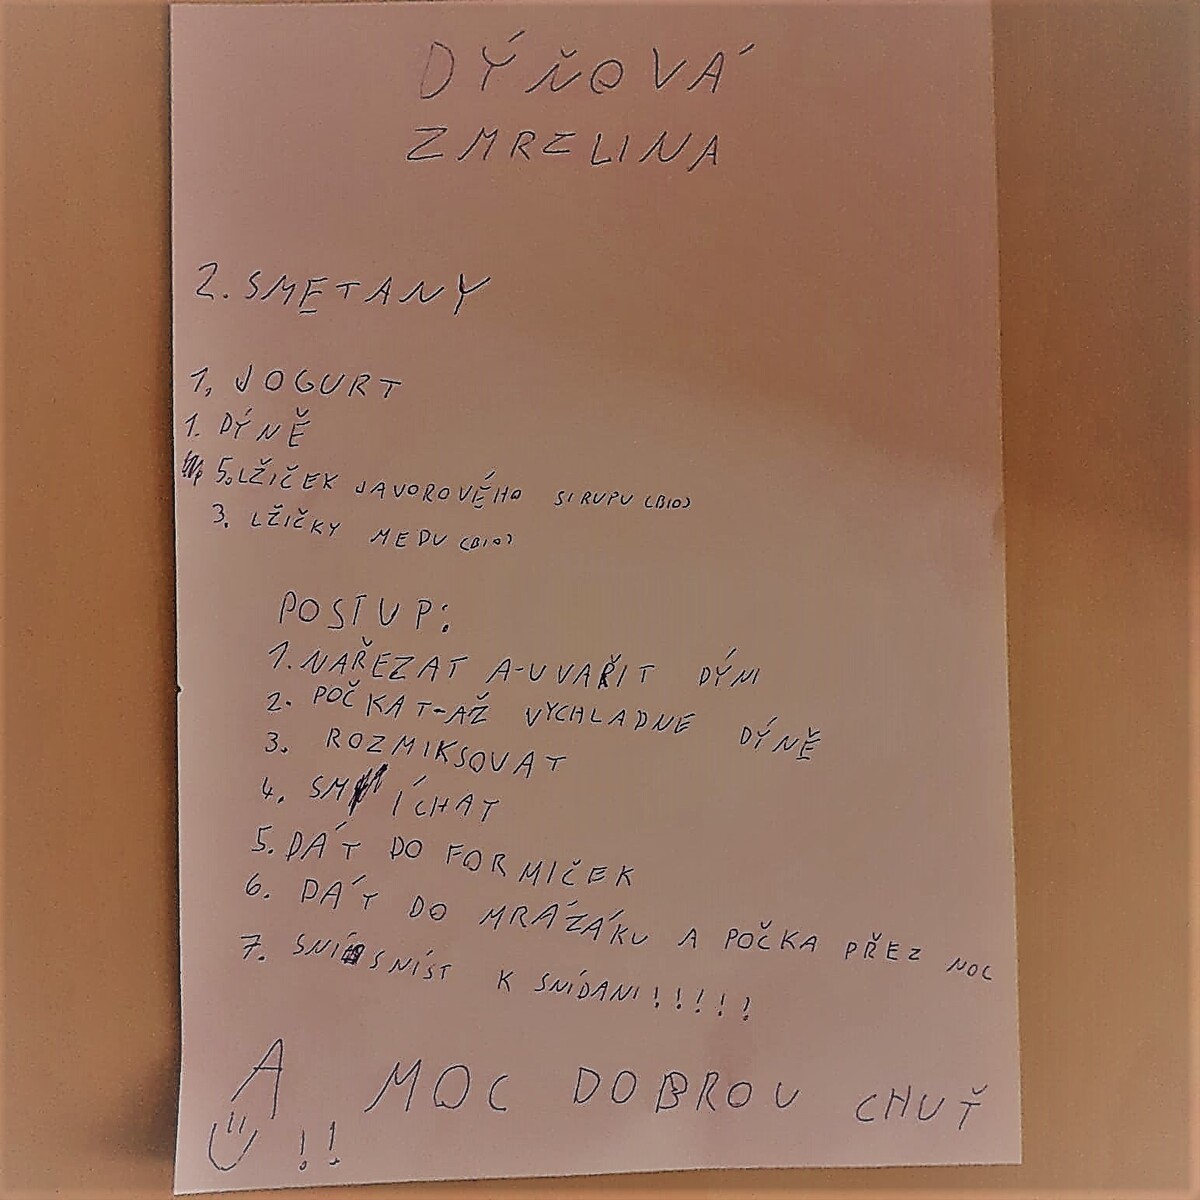 DÝŇOVÁ
ZMRZLINA
2. SMETANY
1, JOGURT
1. DÝNĚ
5. LŽIČEK JAVOROVÉHO SIRUPU (BIO)
3. LŽIČKY MEDU (BIO)
POSTUP:
1. NAŘEZAT A-UVAŘIT DÝNI
2. POČKAT-AŽ VYCHLADNE DÝNĚ
3. ROZMIKSOVAT
4. SMÍCHAT
5. DÁT DO FORMIČEK
6. DÁT DO MRÁZÁKU A POČKA PŘEZ NOC
7. SNÍ SNÍST K SNÍDANI!!!!!
A MOC DOBROU CHUŤ
!!